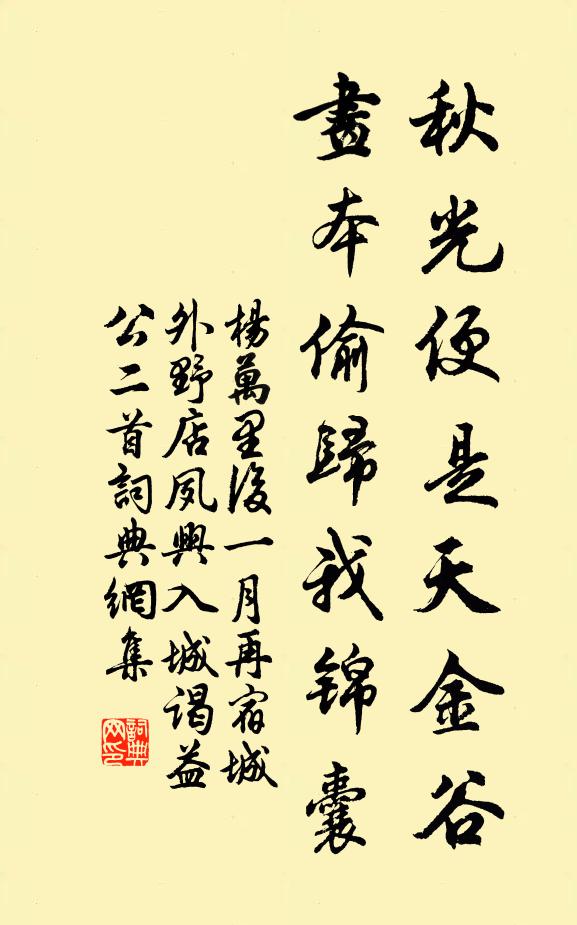 秋光便是天金谷
畫本偷歸我錦囊
楊萬里後一月再宿城
外野店夙興入城謁益
公二首詞典網集
詞典網印